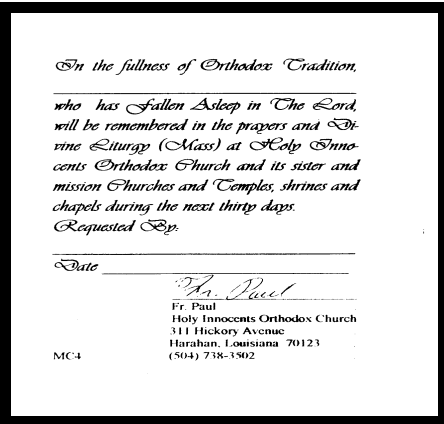 In the fullness of Orthodox Tradition,
who has Fallen Asleep in The Lord,
will be remembered in the prayers and Di-
vine Liturgy (Mass) at Holy Inno-
cents Orthodox Church and its sister and
mission Churches and Temples, shrines and
chapels during the next thirty days.
Requested By:
Date
Fr. Paul
Fr. Paul
Holy Innocents Orthodox Church
311 Hickory Avenue
Harahan, Louisiana 70123
MC4 (504) 738-3502